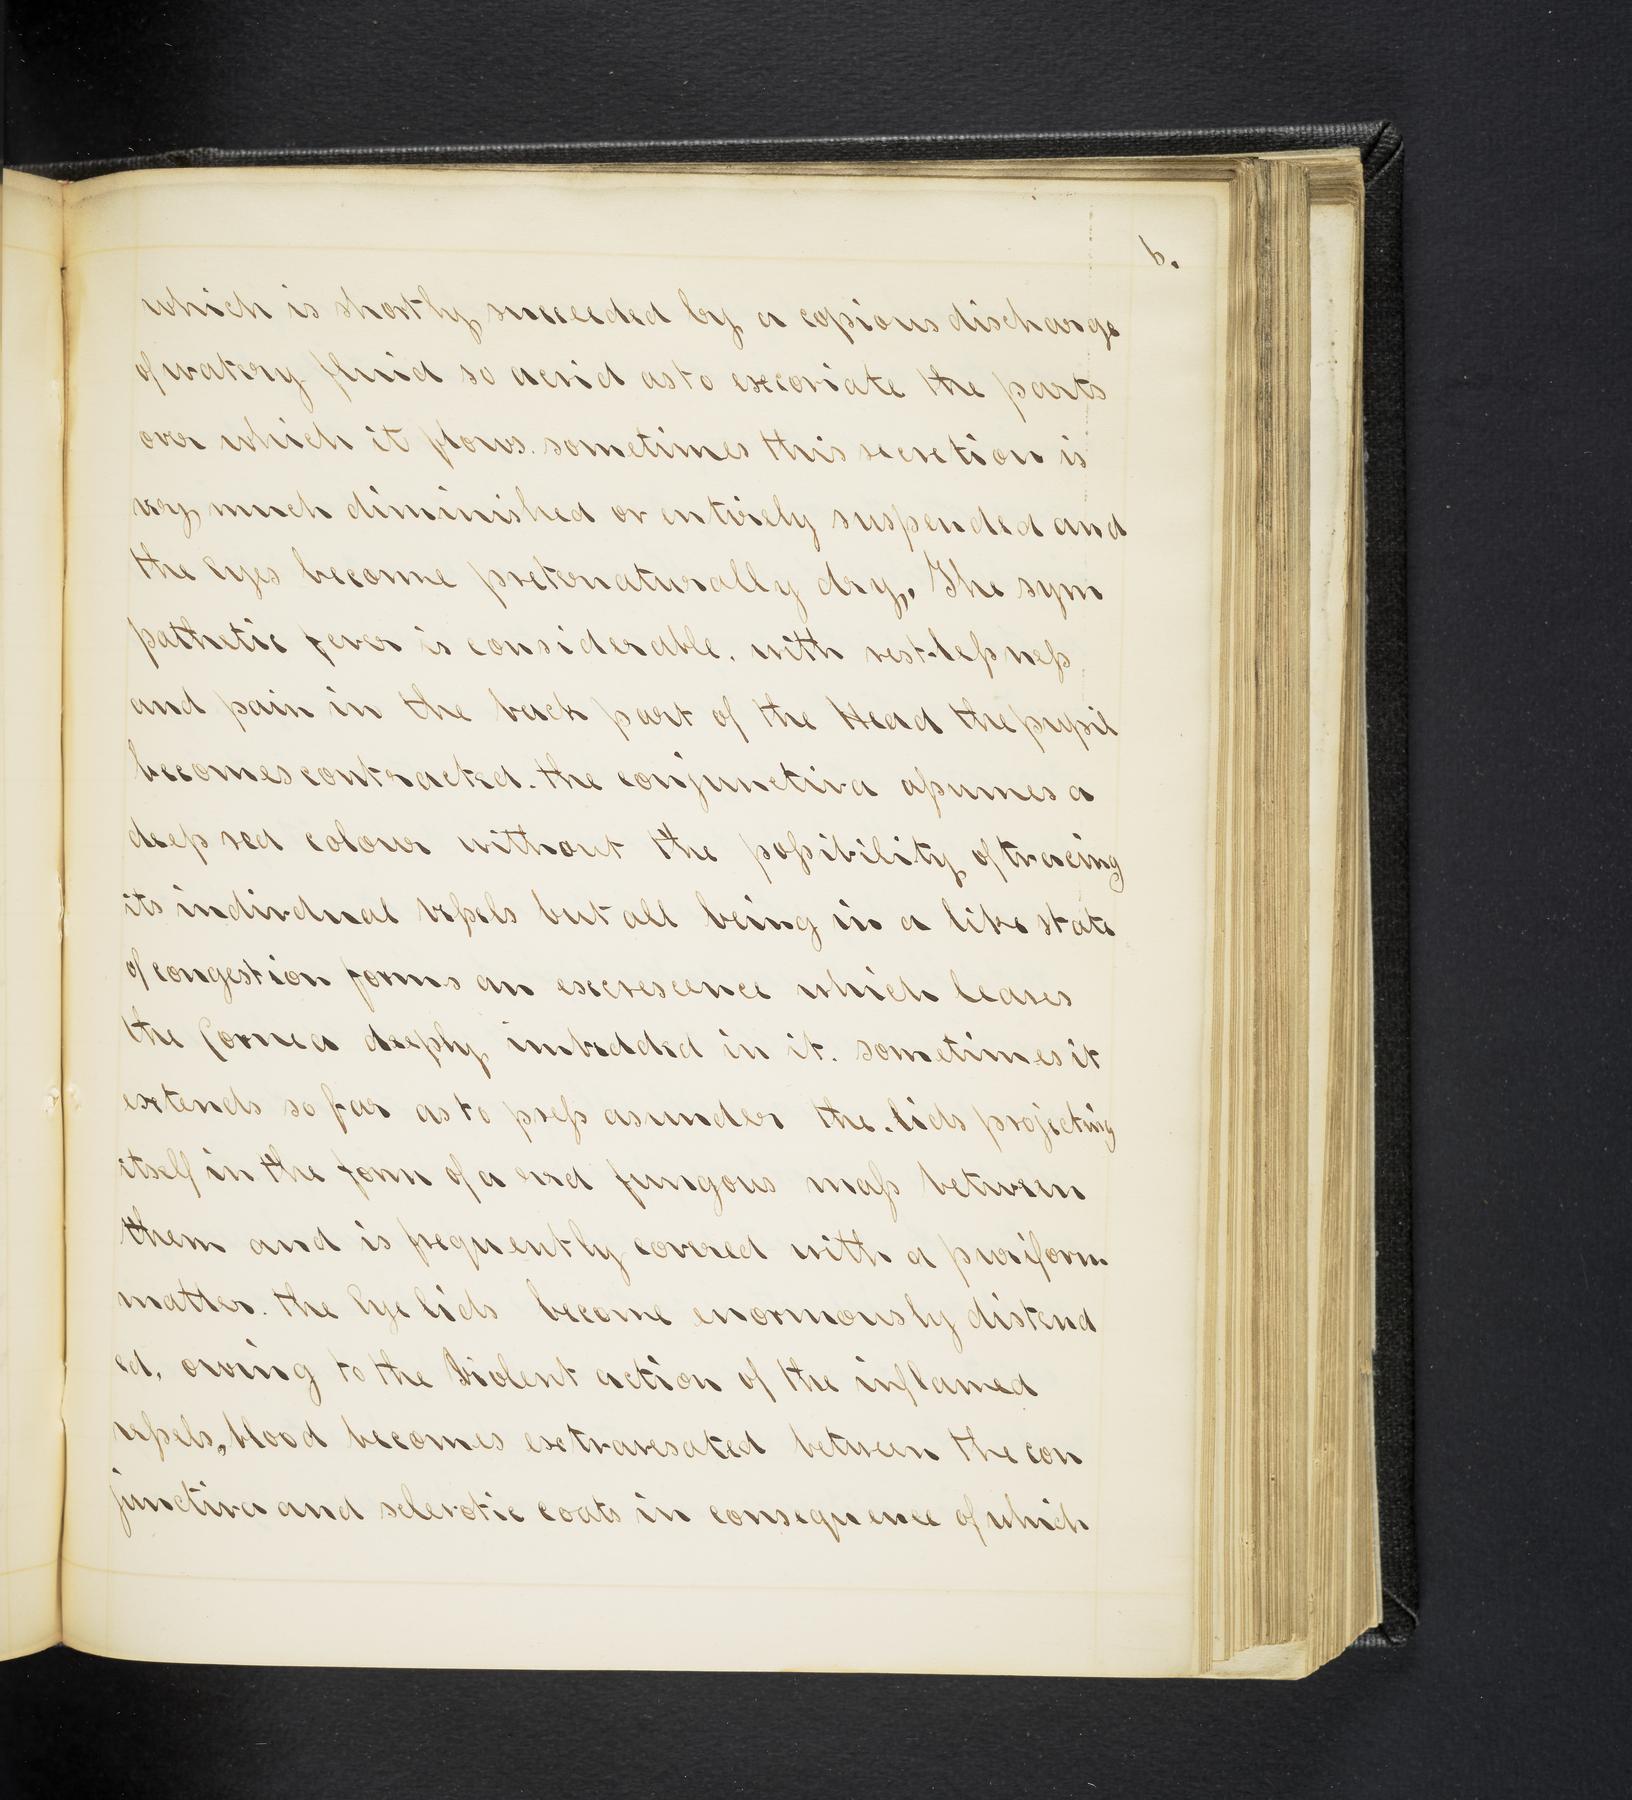 6.
which is shortly succeeded by a copious discharge
of watery fluid so acrid as to excoriate the parts
over which it flows. sometimes this secretion is
very much diminished or entirely suspended and
the eyes become preternaturally dry,. The sym
pathetic fever is considerable. with rest-lessness
and pain in the back part of the Head the pupil
becomes contracted. the conjunctiva assumes a
deep red colour without the possibility of tracing
its individual vessels but all being in a like state
of congestion forms an excrescence which leaves
the Cornea deeply imbedded in it. sometimes it
extends so far as to press asunder the. lids projecting
itself in the form of a red fungous mass between
them and is frequently covered with a puriform
matter. the Eye lids become enormously distend
ed, owing to the Violent action of the inflamed
vessels, blood becomes extravesated between the con
junctiva and sclerotic coats in consequence of which